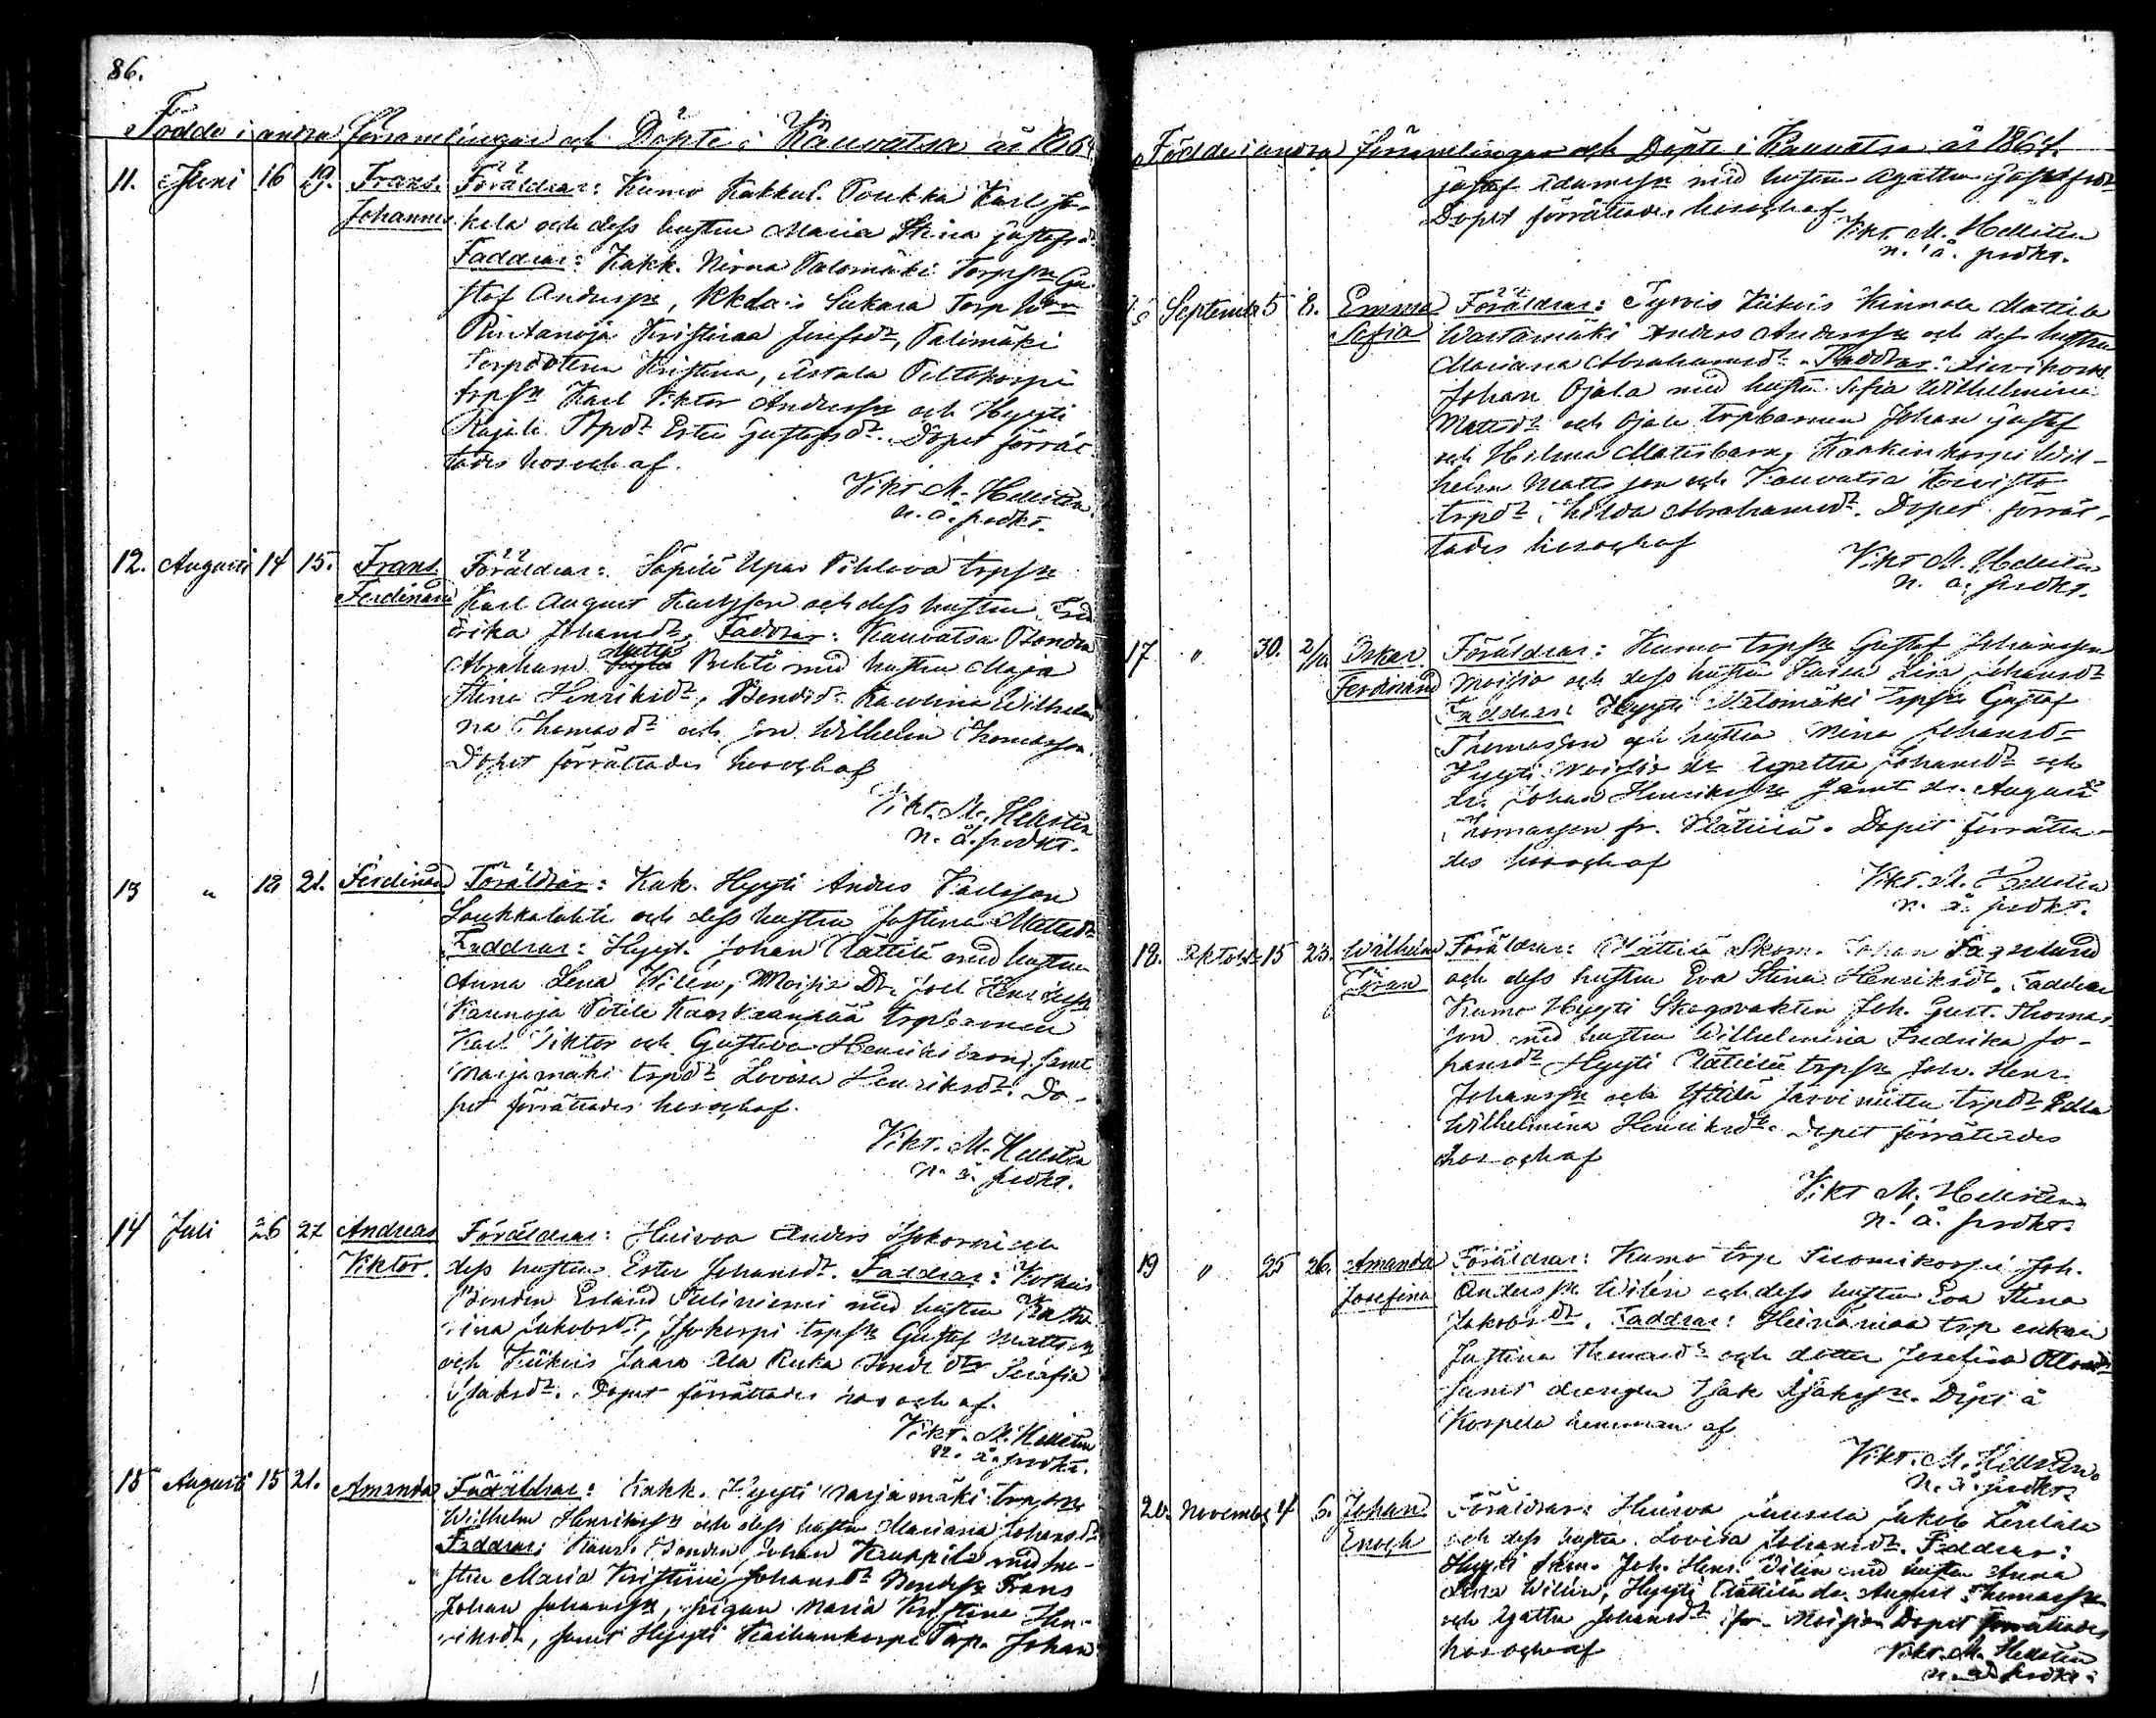 86.
Födde i andra församlingar och Döpte i Kauvatsa år 1864
11. Juni 16 19. Frans Johannes Föräldrar: Kumo Kakkul. Poukka Karl Jo-
kela och dess hustru Maria Stina Gustafsdr
Faddrar: Kakk. Nirva Palomäki Torpsn Gu-
staf Andersn, Kkda: Sukara Torp
Rintanoja Kristina Josefsdr, Palimäki
torpdottren Kristina, Peltokorpi
trpsn Karl Viktor Andersn och Hyyti
Rajala Trpdr Ester Gustafsdr. Dopet förrät-
tades hos och af
Vikt. M. Hellstén
n. å. prdkt.
12. Augusti 14 15. Frans Ferdinand Föräldrar: Säpilä Upas Pihlava trpsn
Karl August Karlsson och dess hustru Fred
rika Johansdr. Faddrar: Kauvatsa Bonden
Abraham Matts Pehti med hustru Maja
Stina Henriksdr, Bondsdr Karolina Wilhelmi
na Thomasdr och son Wilhelm Thomasson
Dopet förrättades hos och af
Vikt. M. Hellstén
n. å. prdkt.
13 " 18 21. Ferdinand Föräldrar: Kak. Hyyti Anders Karlsson
Loukkalahti och dess hustru Justina Mattsdr
Faddrar: Hyyt. Johan Plättilä med hustru
Anna Lena Wilén, Moisio Dr. Joel Henriksn
Karl Viktor och Gustava Henriks barn, samt
Marjamäki trpdr Lovisa Henriksdr. Do-
pet förrättades hos och af
Vikt. M. Hellstén
n. å. prdkt.
14 Juli 26 27 Andreas Viktor. Föräldrar: Huivoa Anders Isokorpi och
dess hustru Ester Johansdr. Faddrar:
Bonden Erland Tuliniemi med hustru Kat
rina Jakobsdr, Isokorpi trpsn Gustaf Matts
och Kiikois Jaara Ala Ruka Bonddr Serafia
Isaksdr. Dopet förrättades hos och af
Vikt. M. Hellstén
n. å. prdkt.
15 Augusti 15 21. Amanda Föräldrar: Kakk. Hyyti Marjamäki trpsn
Wilhelm Henriksn och dess hustru Mariana Johansdr
Faddrar: Kauv. Bonden Johan Kauppila med hu-
stru Maria Kristina Johansdr Bondesn Frans
Johan Johansn, pigan Maria Kristina Hen-
riksdr, samt Hyyti Torp. Johan
Födde i andra församlingar och Döpte i Kauvatsa år 1864.
Gustaf Adamssn med hustru Agatha Gustafsdr
Dopet förrättades hos och af
Vikt. M. Hellstén
n. å. prdkt.
16 September 5 8. Emma Sofia Föräldrar: Tyrvis Kiikois Kinnala Mattila
Wastamäki Anders Andersn och dess hustru
Mariana Abrahamsdr. Faddrar:
Johan Ojala med hustru Sofia Wilhelmina
Mattsdr och Ojala trpbarnen Johan Gustaf
och Hilma Matts barn, Wil-
helm Matts son och Kauvatsa Koivisto
trpdr Hilda Abrahamsdr. Dopet förrät-
tades hos och af
Vikt M. Hellstén
n. å. prdkt.
17 " 30. 2/10 Oskar Ferdinand Föräldrar: Kumo trpsn Gustaf Johansson
Moisio och dess hustru Lisa Johansdr
Faddrar: Hyyti Palomäki trpsn Gustaf
Thomasson och hustru Mina Johansdr
Hyyti Moisio dr Agatha Johansdr och
dr. Johan Henriksn samt dr. August
Thomasson fr. Plättilä. Dopet förrätta-
des hos och af
Vikt. M. Hellstén
n. å. prdkt.
18. Oktober 15 23. Wilhelm Föräldrar: Plättilä Skom. Johan Fagerlund
och dess hustru Eva Stina Henriksdr. Faddrar
Kumo Hyyti Skogsvakten Joh. Gust. Thomas-
son med hustru Wilhelmina Fredrika Jo-
hansdr Hyyti Plättilä trpsn Joh. Henr.
Johanssn och Järvinitta trpdr Edla
Wilhelmina Henriksdr. Dopet förrättades
hos och af
Vikt M. Hellstén
n. å. prdkt.
19 " 25 26. Amanda Josefina Föräldrar: Kumo trp Suomikorpi Joh.
Andersn Wilén och dess hustru Eva Stina
Jakobsdr. Faddrar: Heinämaa trp enkan
Justina Thomasdr och dotter Josefina
samt drengen Isak Isaksn. Döpt å
Korpela hemman af
Vikt. M. Hellstén
n. å. prdkt.
20. November 4 5. Johan Enoch Föräldrar: Huivoa Juusela Jakob
och dess hustru Lovisa Johansdr. Faddrar:
Hyyti Skom. Joh. Henr. Wilén med hustru Anna
Lena Wilén, Hyyti Plättilä dr. August Thomasn
och Agatha Johansdr fr. Moisio. Dopet förrättades
hos och af
Vikt. M. Hellstén
n. å. prdkt.